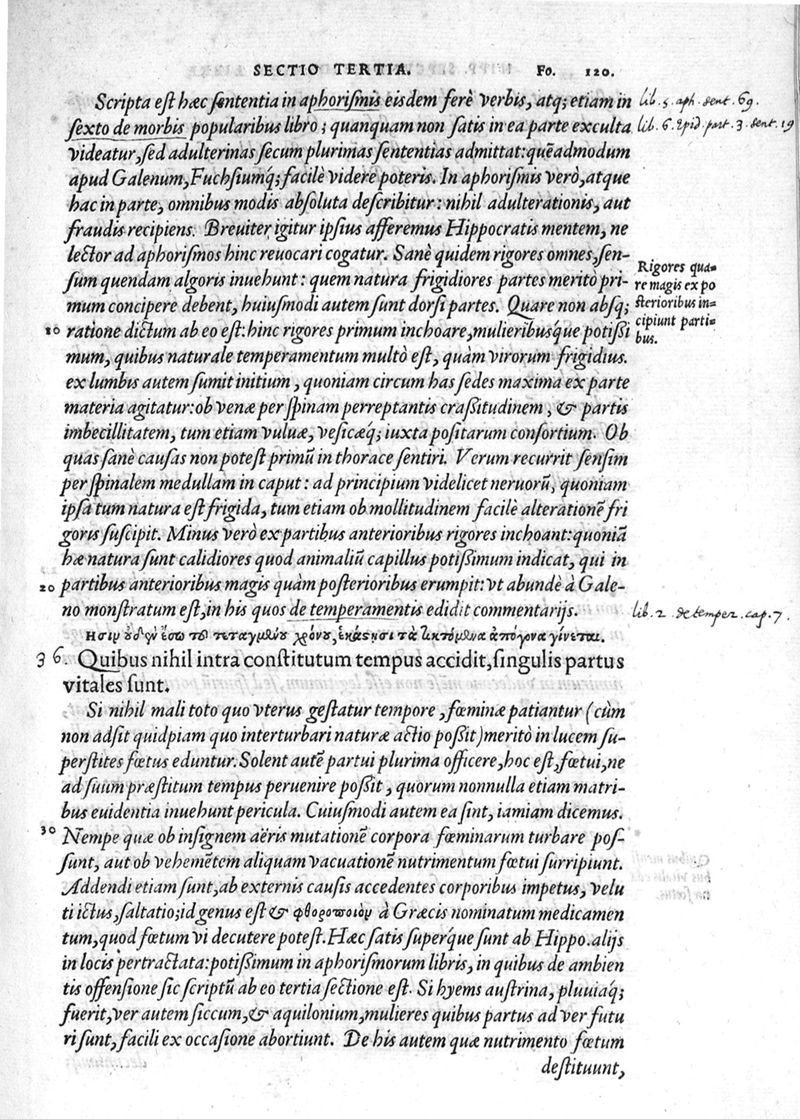 SECTIO TERTIA. Fo. 120.
Scripta est hæc sententia in aphorismis eisdem ferè verbis, atq; etiam in
lib. 5. aph. sent. 69.
sexto de morbis popularibus libro; quanquam non satis in ea parte exculta
lib. 6. Epid. part. 3. sent. 19
videatur, sed adulterinas secum plurimas sententias admittat: quēadmodum
apud Galenum, Fuchsiumq́; facilè videre poteris. In aphorismis verò, atque
hac in parte, omnibus modis absoluta describitur: nihil adulterationis, aut
fraudis recipiens. Breuiter igitur ipsius afferemus Hippocratis mentem, ne
lector ad aphorismos hinc reuocari cogatur. Sanè quidem rigores omnes, sen-
sum quendam algoris inuehunt: quem natura frigidiores partes meritò pri-
mum concipere debent, huiusmodi autem sunt dorsi partes. Quare non absq;
Rigores qua=
re magis ex po
sterioribus in=
cipiunt parti=
bus.
10 ratione dictum ab eo est: hinc rigores primum inchoare, mulieribusq́ue potißi
mum, quibus naturale temperamentum multò est, quàm virorum frigidius.
ex lumbis autem sumit initium, quoniam circum has sedes maxima ex parte
materia agitatur: ob venæ per spinam perreptantis craßitudinem, & partis
imbecillitatem, tum etiam vuluæ, vesicæq́; iuxta positarum consortium. Ob
quas sanè causas non potest primū in thorace sentiri. Verum recurrit sensim
per spinalem medullam in caput: ad principium videlicet neruorū, quoniam
ipsa tum natura est frigida, tum etiam ob mollitudinem facilè alterationē fri
goris suscipit. Minus verò ex partibus anterioribus rigores inchoant: quoniā
hæ natura sunt calidiores quod animaliū capillus potißimum indicat, qui in
20 partibus anterioribus magis quàm posterioribus erumpit: vt abundè à Gale-
no monstratum est, in his quos de temperamentis edidit commentarijs.
lib. 2. de temper. cap. 7.
Ησιν οὐδὲν ἔσω τοῦ τεταγμένου χρόνου, ἑκάστῃσι τὰ τικτόμενα ἀπόγονα γίνεται.
36. Quibus nihil intra constitutum tempus accidit, singulis partus
vitales sunt.
Si nihil mali toto quo vterus gestatur tempore, fœminæ patiantur (cùm
non adsit quidpiam quo interturbari naturæ actio poßit) meritò in lucem su-
perstites fœtus eduntur. Solent autē partui plurima officere, hoc est, fœtui, ne
ad suum præstitum tempus peruenire poßit, quorum nonnulla etiam matri-
bus euidentia inuehunt pericula. Cuiusmodi autem ea sint, iamiam dicemus.
30 Nempe quæ ob insignem aëris mutationē corpora fœminarum turbare pos-
sunt, aut ob vehemētem aliquam vacuationē nutrimentum fœtui surripiunt.
Addendi etiam sunt, ab externis causis accedentes corporibus impetus, velu
ti ictus, saltatio; id genus est & φθοροποιὸν à Græcis nominatum medicamen
tum, quod fœtum vi decutere potest. Hæc satis superq́ue sunt ab Hippo. alijs
in locis pertractata: potißimum in aphorismorum libris, in quibus de ambien
tis offensione sic scriptū ab eo tertia sectione est. Si hyems austrina, pluuiaq́;
fuerit, ver autem siccum, & aquilonium, mulieres quibus partus ad ver futu
ri sunt, facili ex occasione abortiunt. De his autem quæ nutrimento fœtum
destituunt,